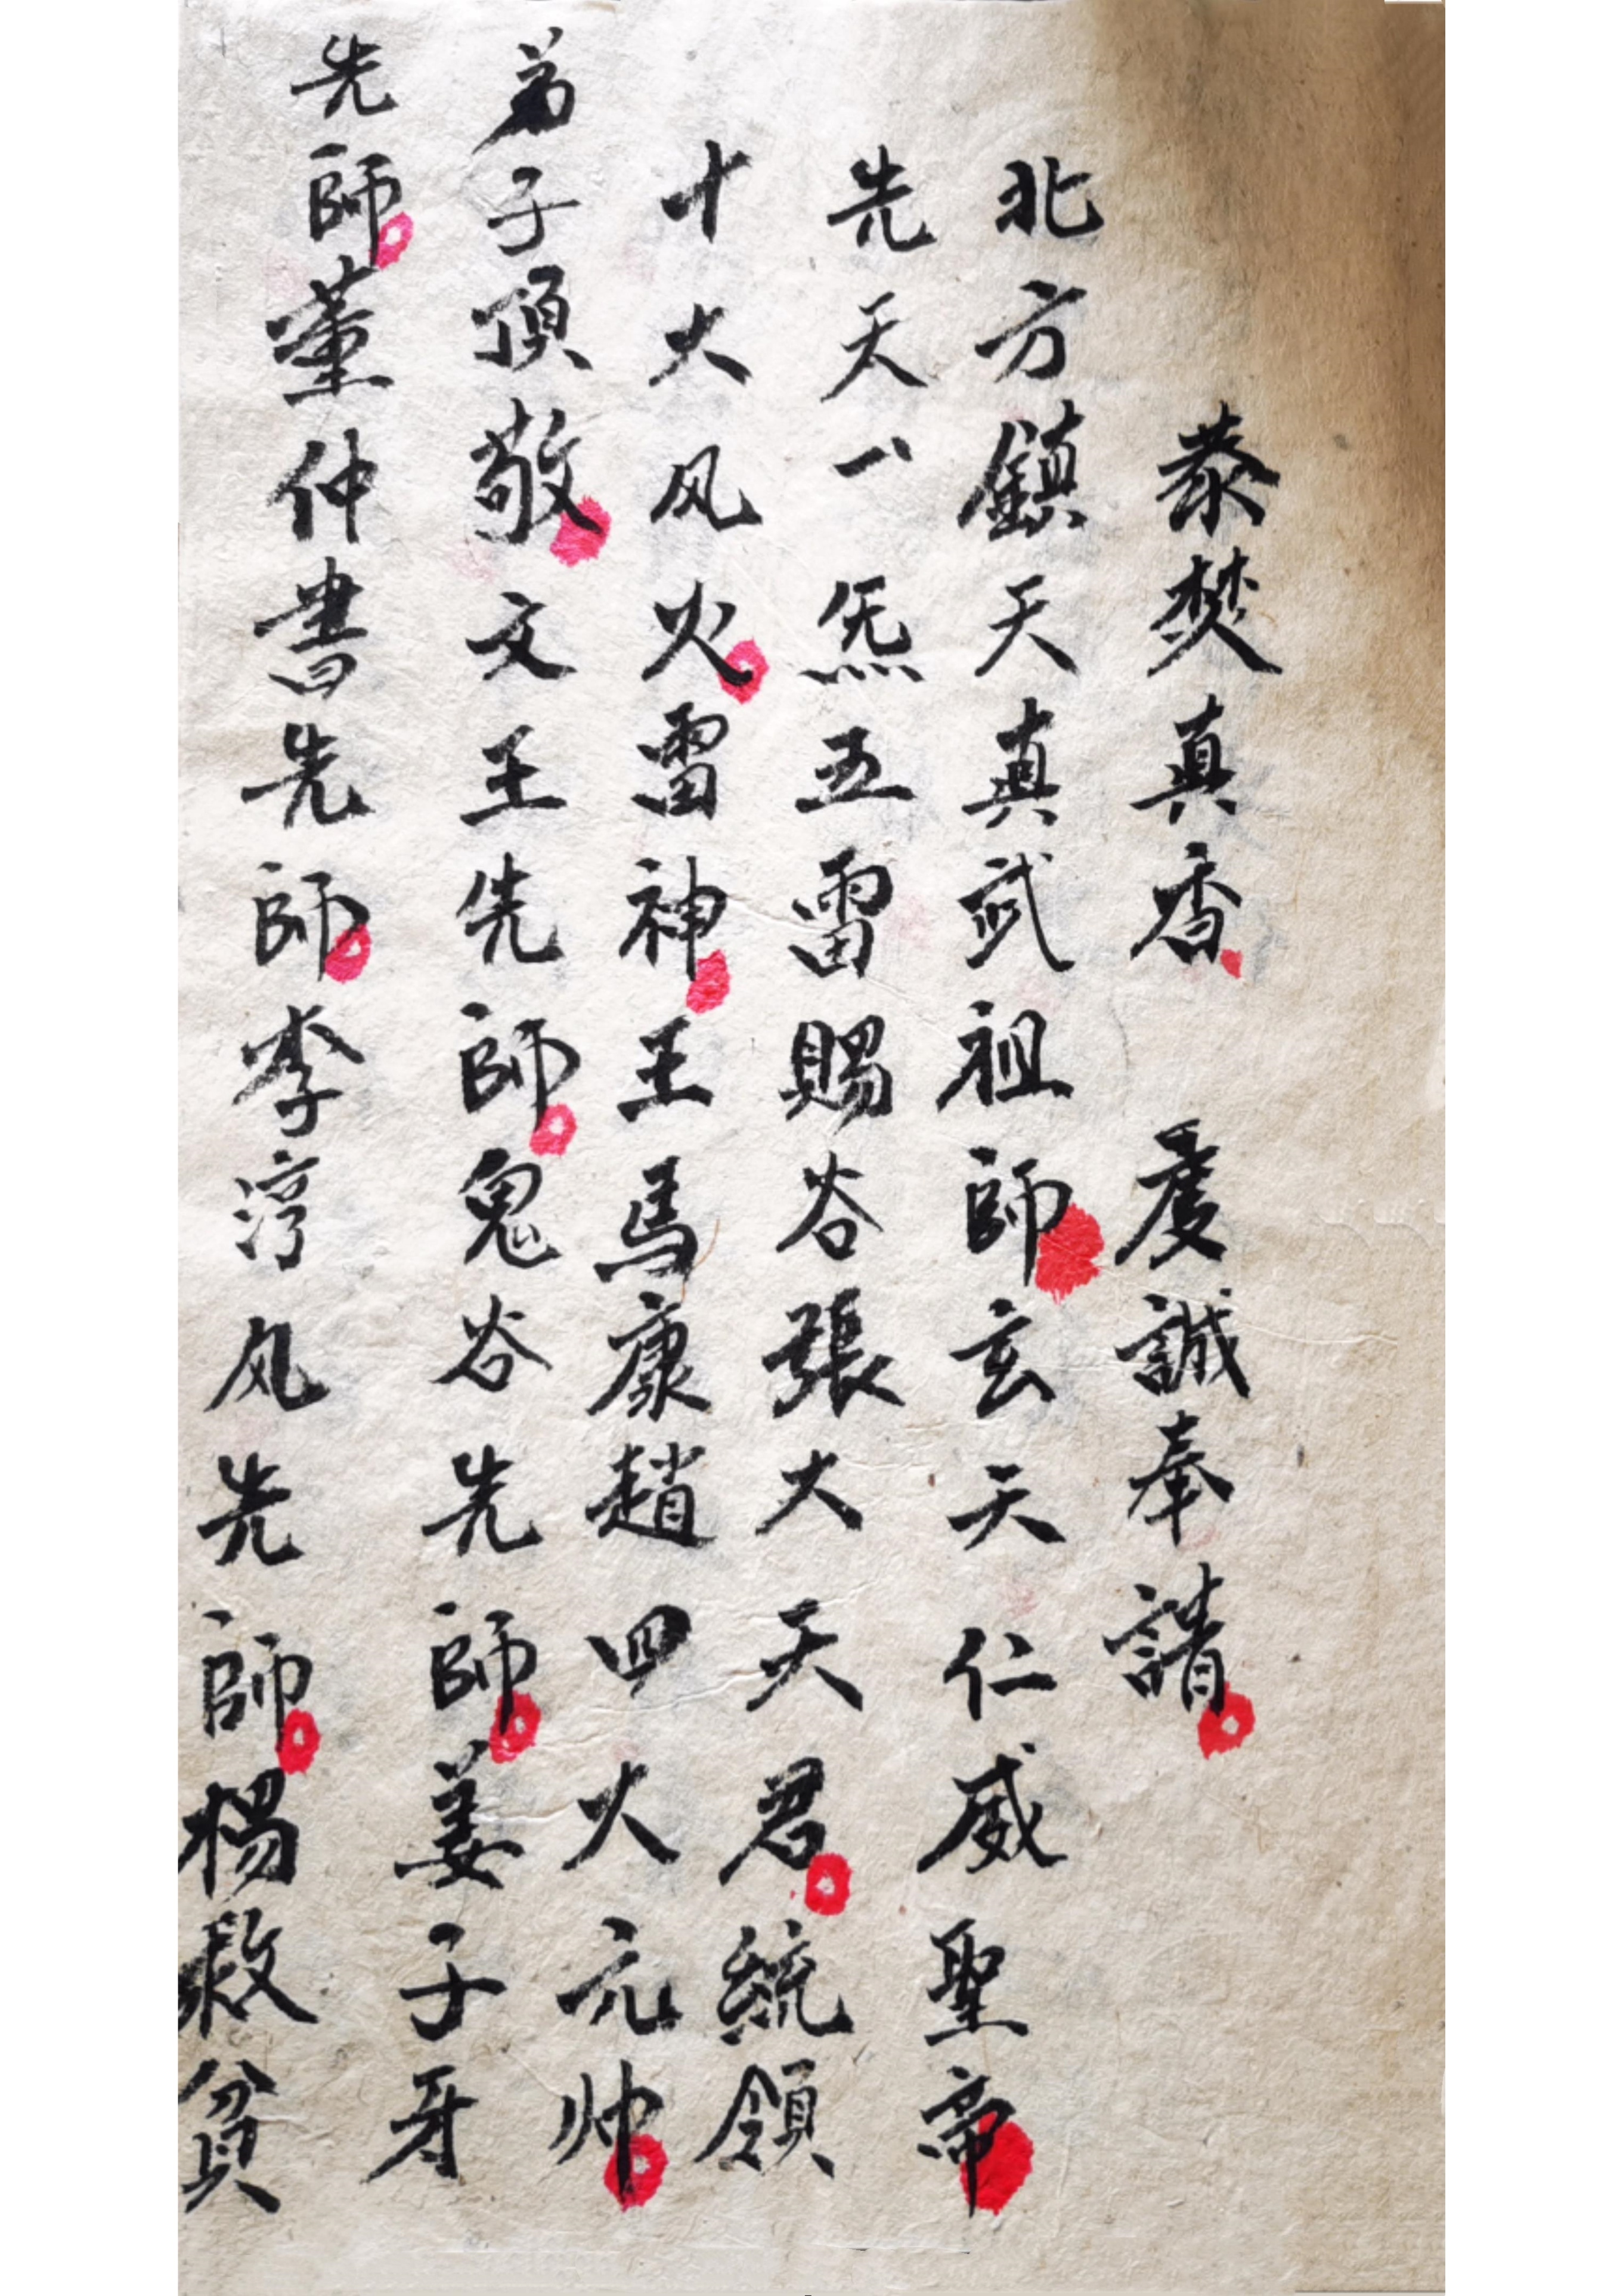 恭焚真香 虔誠奉請
北方鎮天真武祖師玄天仁威聖帝
先天一炁五雷賜谷張大天君統領
十大风火雷神王馬康趙四大元帅
弟子頂敬文王先師鬼谷先師姜子牙
先師董仲書先師李淳风先師楊救貧